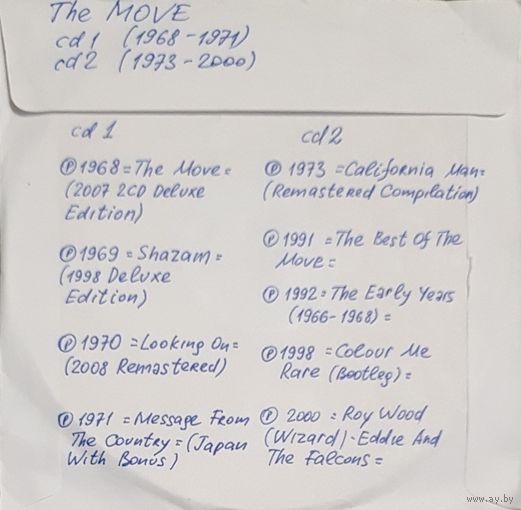 The MOVE
cd 1 (1968-1971)
cd 2 (1973-2000)
cd 1
Ⓟ 1968 = The Move =
(2007 2CD Deluxe
Edition)
Ⓟ 1969 = Shazam =
(1998 Deluxe
Edition)
Ⓟ 1970 = Looking On =
(2008 Remastered)
Ⓟ 1971 = Message From
The Country = (Japan
With Bonus)
cd 2
Ⓟ 1973 = California Man =
(Remastered Compilation)
Ⓟ 1991 = The Best Of The
Move =
Ⓟ 1992 = The Early Years
(1966-1968) =
Ⓟ 1998 = Colour Me
Rare (Bootleg) =
Ⓟ 2000 = Roy Wood
(Wizard) · Eddie And
The Falcons =
www.ay.by